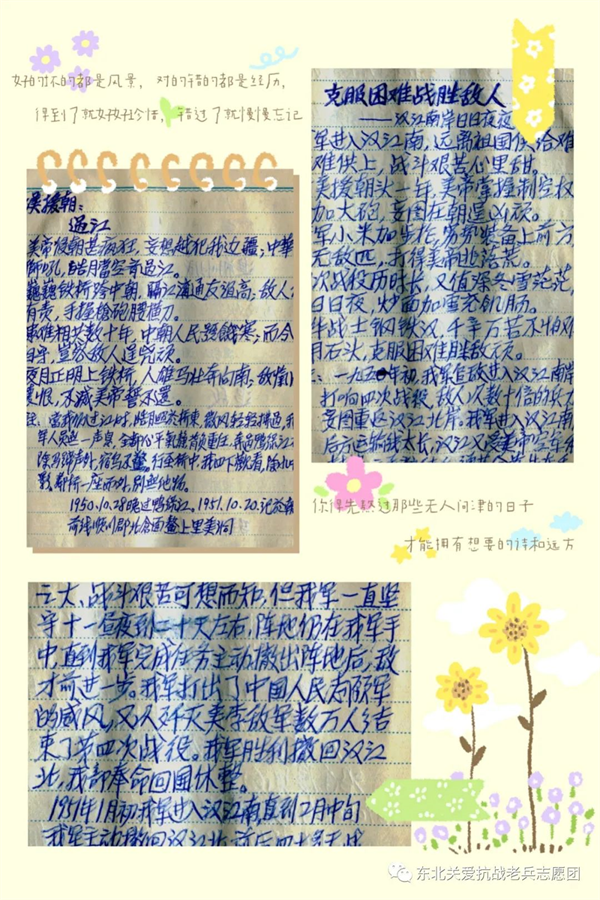 好的坏的都是风景，对的错的都是经历，
得到了就好好珍惜，错过了就慢慢忘记
援朝:
过江
美帝侵朝甚疯狂，妄想越犯我边疆；中华
狮吼，皓月当空夜过江。
铁桥跨中朝，隔江友谊高；敌人
手握枪砲腰插刀。
难相共数十年，中朝人民饥寒；而今
宣告敌人逞凶顽。
夜月正明上铁桥，人雄马壮奔向南；敌
恨，不灭美帝誓不还。
注：当我们过江时，皓月照桥东，微风轻轻拂过，我
军人员无一声息，
行至桥中，我四下观看，
影，
1950.10.28晚过鸭绿江。1951.10.20.记
前线
克服困难战胜敌人
——汉江南岸日日夜夜
军进入汉江南，远离祖国供给难
难供上，战斗艰苦心里甜。
美援朝头一年，美帝掌握制空权
加大砲，妄图在朝逞凶顽。
军小米加步枪，劣势装备上前方
无敌匹，打得美帝
次战役历时长，又值深冬雪茫茫
日日夜，炒面加雪充饥肠。
战士钢铁汉，千辛万苦不怕难
月石头，克服困难胜敌顽。
一九五一年初，我军直敌进入汉江南岸
打响四次战役，敌人以数十倍的兵力
妄图重返汉江北岸。我军进入汉江南
后方运输线太长，汉江又受美帝空车
你得先破过那些无人问津的日子
才能拥有想要的诗和远方
之大、战斗艰苦可想而知，但我军一直坚
守十一昼夜到二十天左右，阵地仍在我军手
中，直到我军完成任务主动撤出阵地后，敌
才前进一步。我军打出了中国人民志愿军
的威风，又以歼灭美李敌军数万人，结
束了第四次战役。我军胜利撤回汉江
北，我部奉命回国休整。
1951年1月初我军进入汉江南直到2月中旬
我军主动撤回汉江北，前后四十多天战
东北关爱抗战老兵志愿团